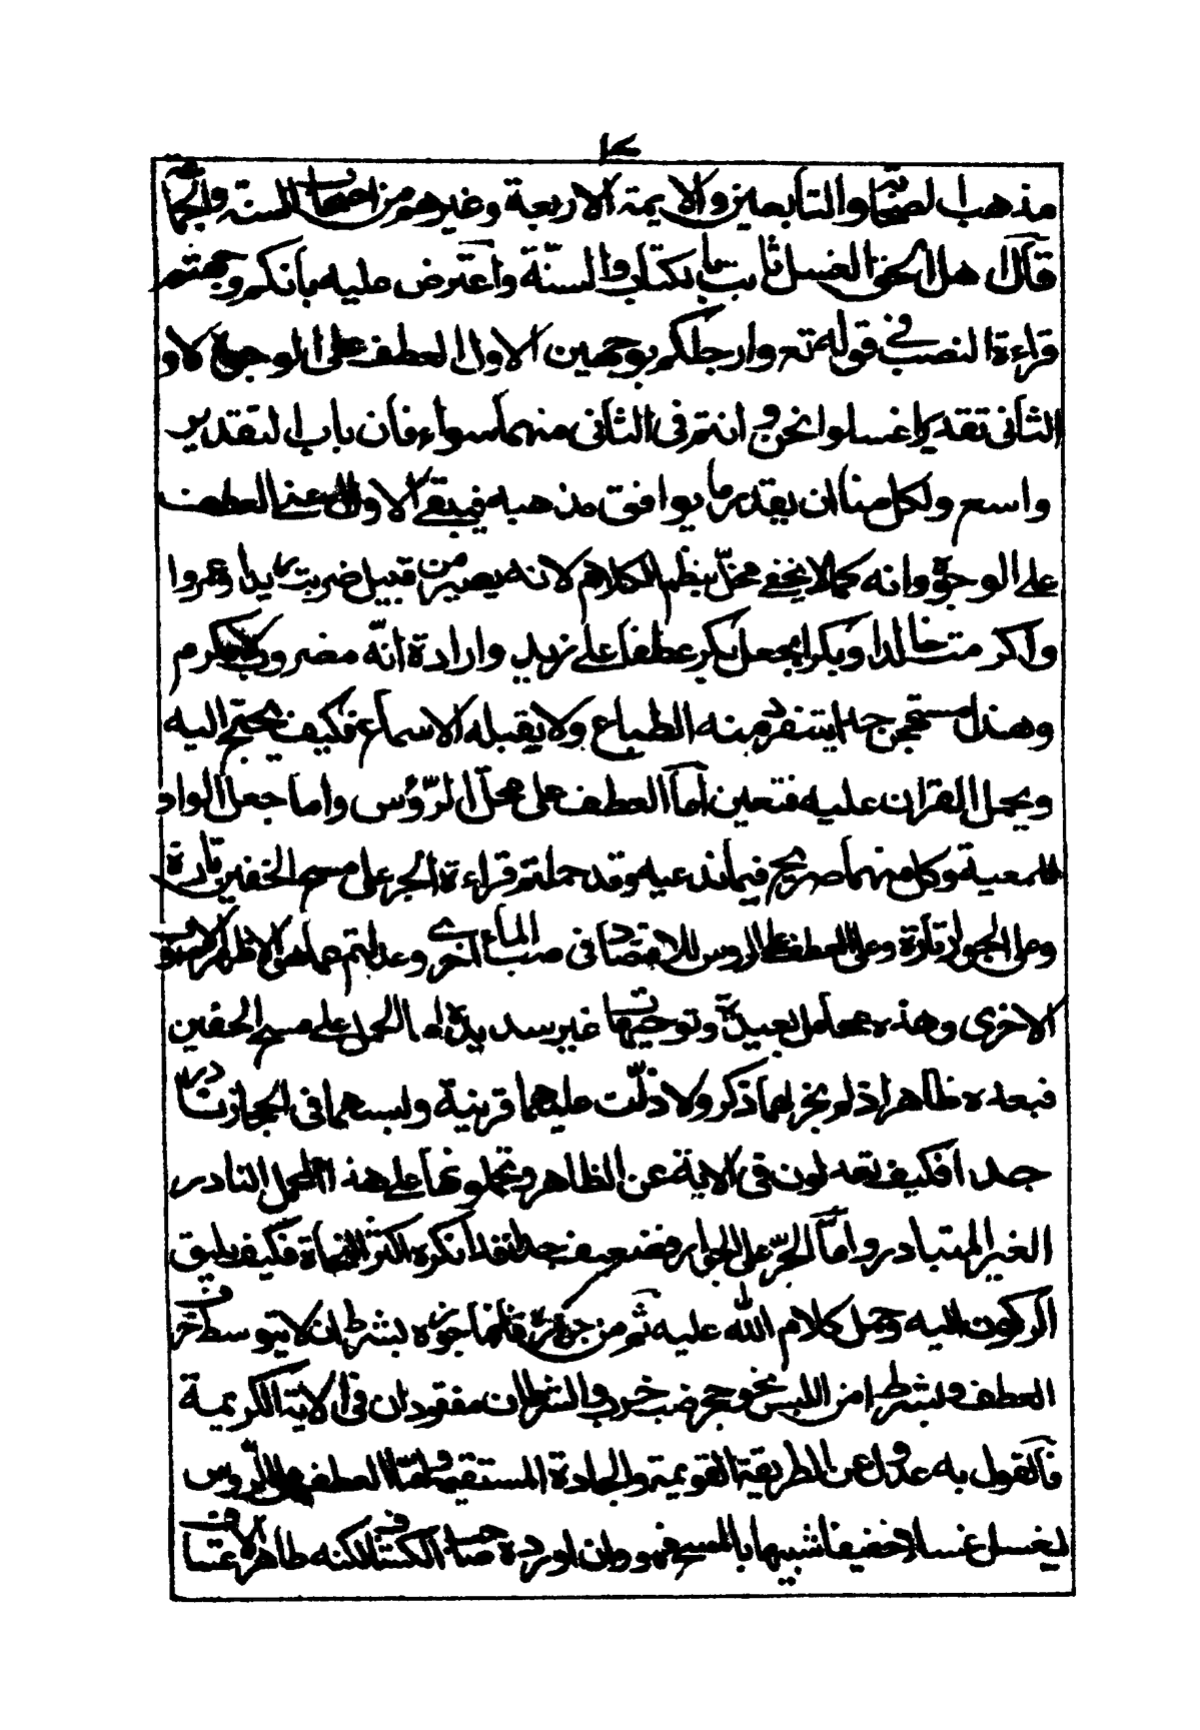 مذهب الصحابة والتابعين والايمة الاربعة وغيرهم من اصحاب السنة والجما
قال اهل الحق الغسل ثابت بالكتاب والسنة واعترض عليه بانكم وجهتم
قراءة النصب في قوله تع وارجلكم بوجهين الاول العطف على الوجوه و
الثانى تقدير اغسلوا نحن وانتم فى الثانى منهما سواء فان باب التقدير
واسع ولكل منا ان يقدر ما يوافق مذهبه فيبقى الاول اعنى العطف
على الوجوه وانه كما لا يخفى مخل بنظم الكلام لانه يصير من قبيل ضربت زيدا وعمروا
واكرمت خالدا وبكرا بجعل بكر عطفا على زيد وارادة انه مضروب لا مكرم
وهذا مستهجن جدا يتنفر منه الطباع ولا يقبله الاسماع فكيف يجنح اليه
ويحمل القران عليه فتعين اما العطف على محل الرؤس واما جعل الواو
للمعية وكل منهما صريح فيما ندعيه وقد حملتم قراءة الجر على مسح الخفين تارة
وعلى الجوار تارة وعلى العطف على الروس للاقتصاد فى صب الماء اخرى وعدلتم
الاخرى وهذه محامل بعيدة وتوجيهات غير سديدة اما الحمل على مسح الخفين
فبعده ظاهر اذ لم يجر لهما ذكر ولا دلت عليهما قرينة ولبسهما فى الحجاز نادر
جدا فكيف تعدلون فى الاية عن الظاهر وتحملونها على هذا المحمل النادر
الغير المتبادر واما الجر على الجوار فضعيف جدا لقد انكره اكثر النحاة فكيف يليق
الركون اليه وحمل كلام الله عليه ثم من جوزه فانما جوزه بشرط ان لا يتوسط حرف
العطف وبشرط امن اللبس نحو جحر ضب خرب والشرطان مفقودان فى الاية الكريمة
فالقول به عدول عن الطريقة القويمة والجادة المستقيمة واما العطف على الروس
ليغسل غسلا خفيفا شبيها بالمسح فهو وان اورده صاحب الكشاف لكنه ظاهر الاعتساف